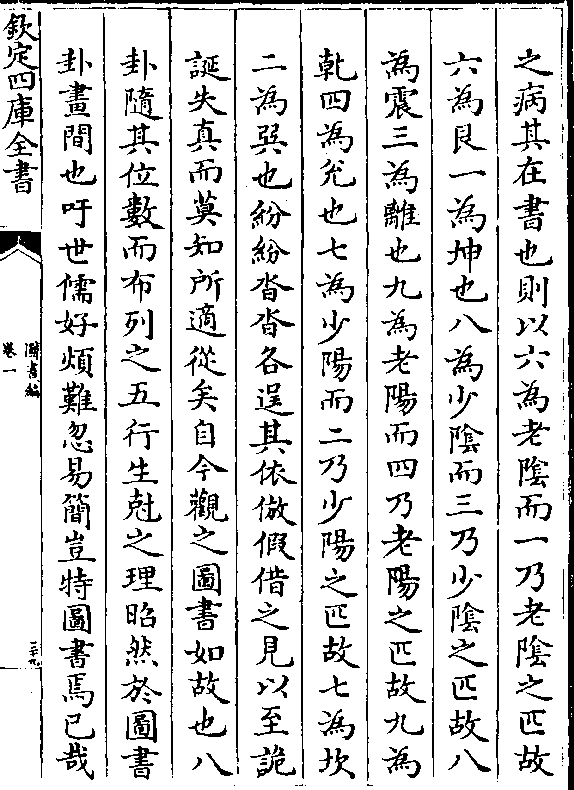 之病其在書也則以六為老陰而一乃老陰之匹故
六為艮一為坤也八為少陰而三乃少陰之匹故八
為震三為離也九為老陽而四乃老陽之匹故九為
乾四為兊也七為少陽而二乃少陽之匹故七為坎
二為巽也紛紛沓沓各逞其依倣假借之見以至詭
誕失真而莫知所適從矣自今觀之圖書如故也八
卦隨其位數而布列之五行生尅之理昭然於圖書
卦畫間也吁世儒好煩難忽易簡豈特圖書焉已哉
欽定四庫全書
圖書編
卷一